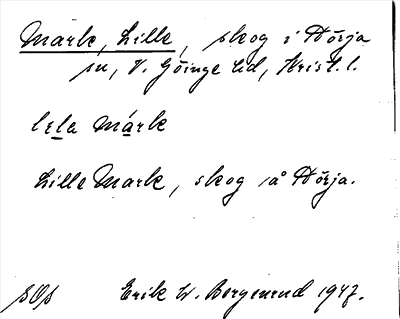 Mark, Lille, skog i Hörja
sn, V. Göinge hd, Krist. l.
lela mark
Lille Mark, skog i Hörja.
SOA Erik W. Bergenrud 1947.